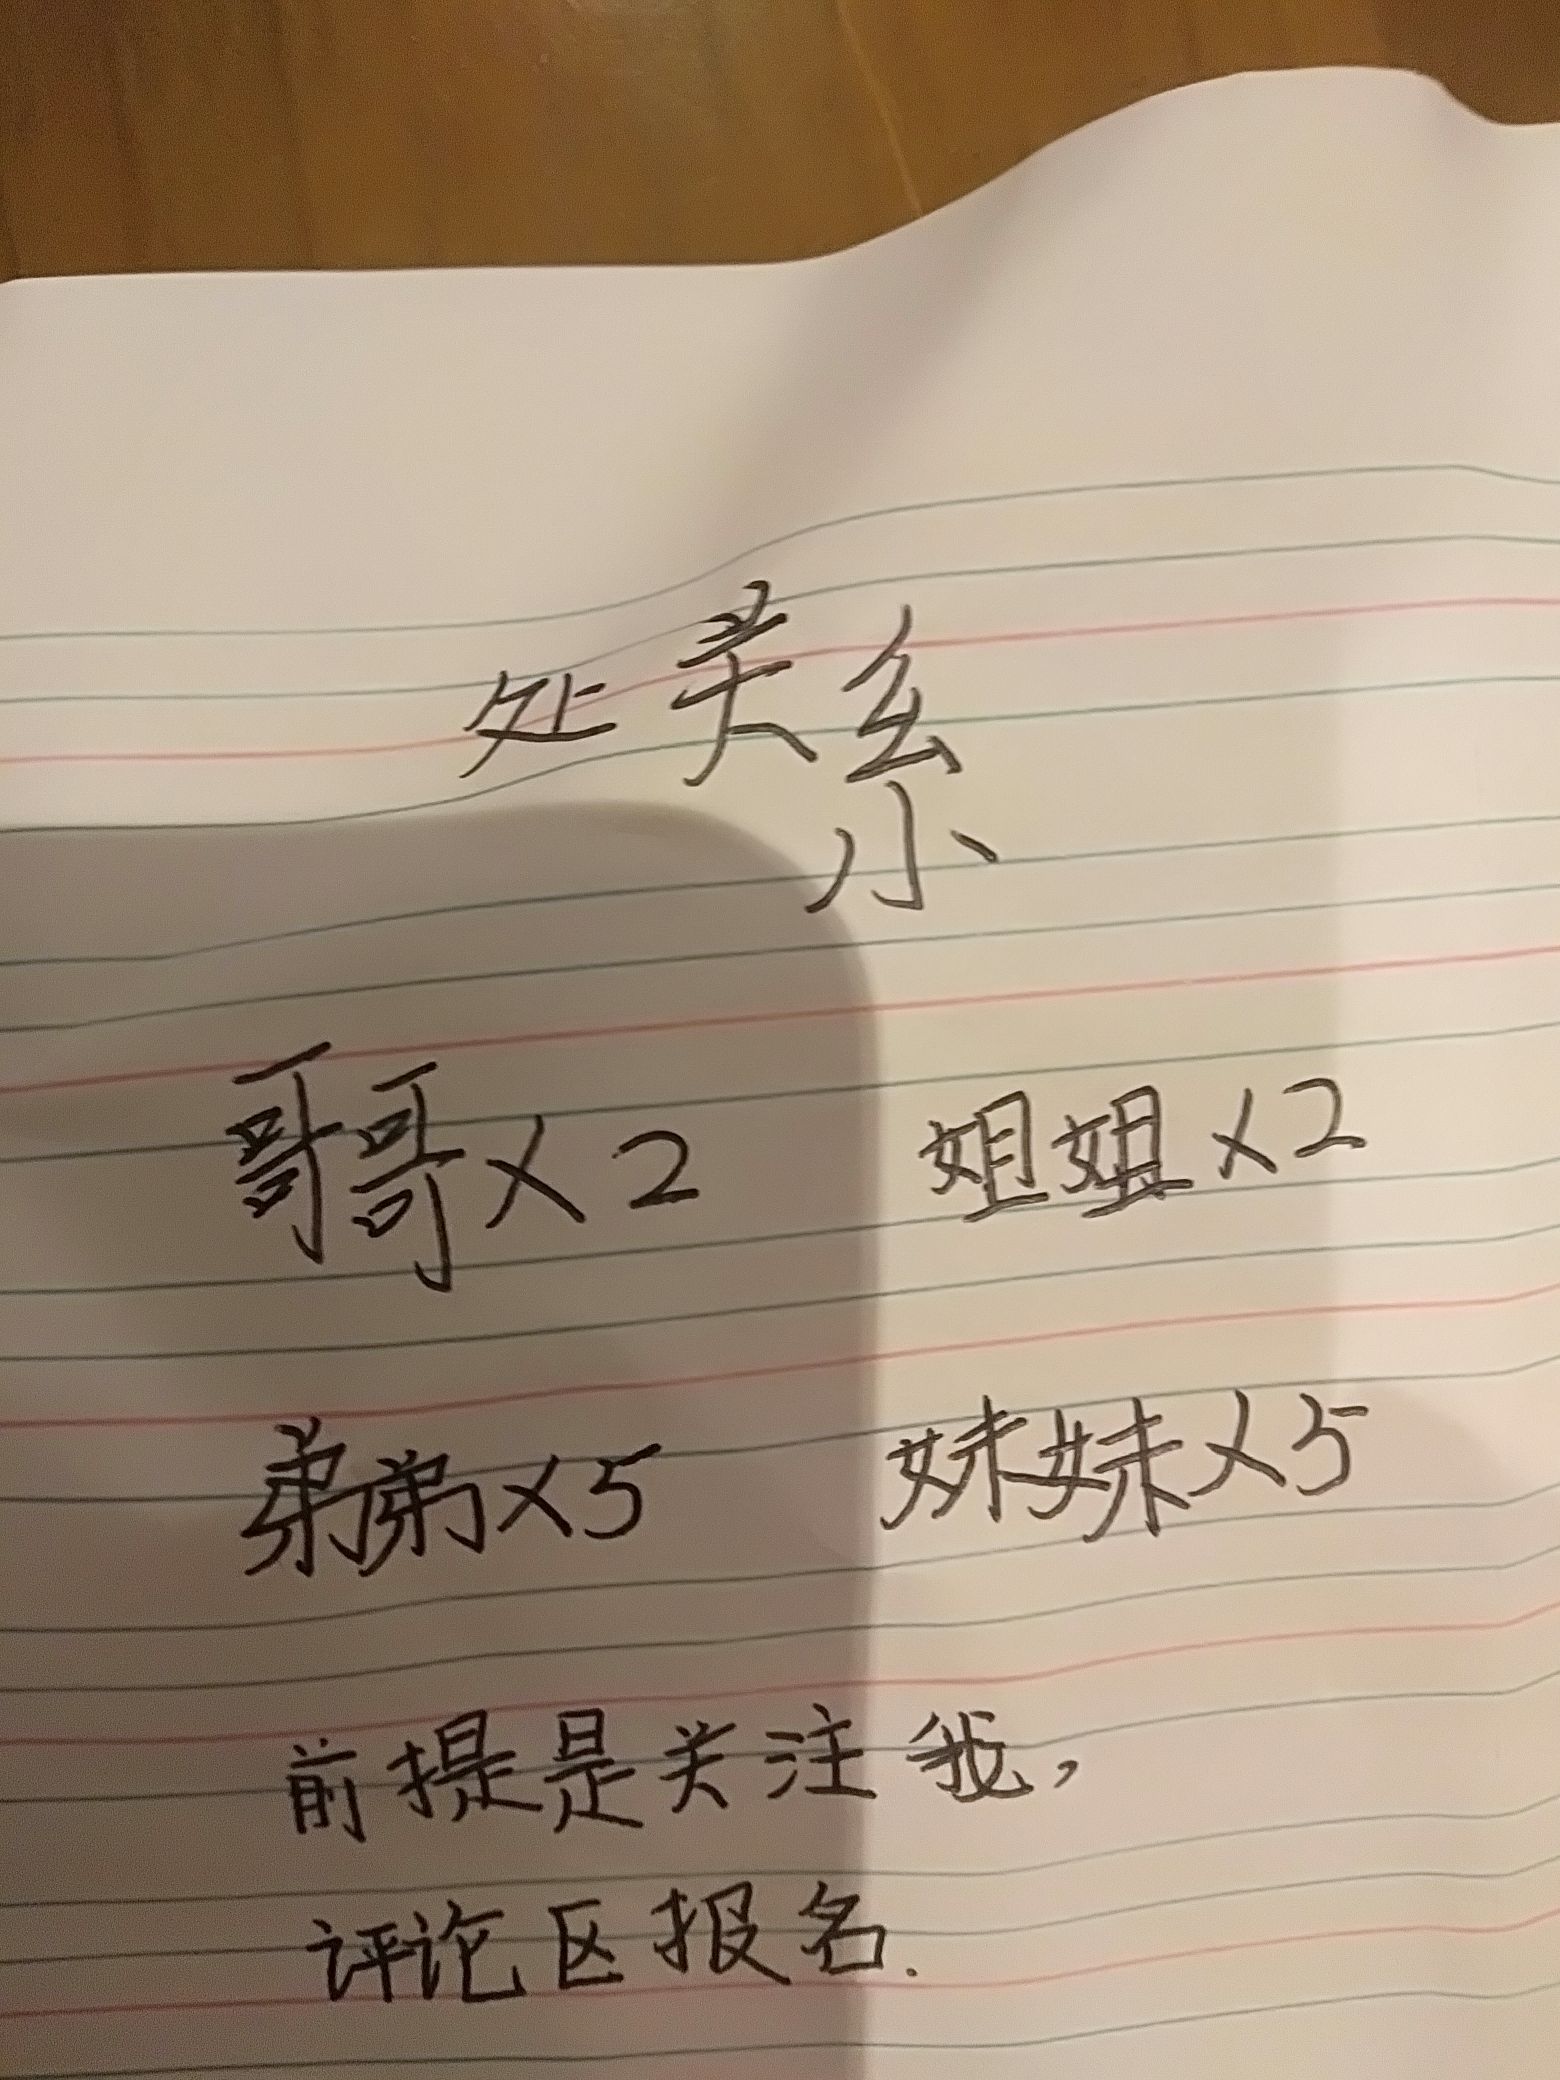 处关系
哥哥×2 姐姐×2
弟弟×5 妹妹×5
前提是关注我，
评论区报名.